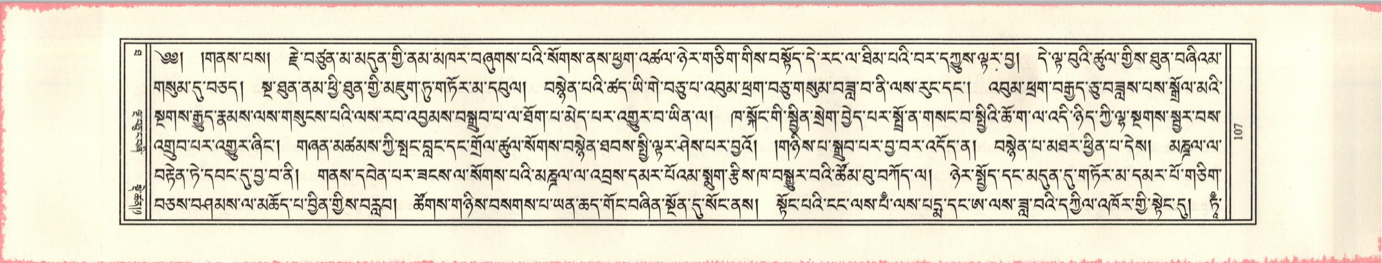 ༄༅། །གནས་པས། རྗེ་བཙུན་མ་མདུན་གྱི་ནམ་མཁར་བཞུགས་པའི་སོགས་ནས་ཕྱག་འཚལ་ཉེར་གཅིག་གིས་བསྟོད་དེ་རང་ལ་ཐིམ་པའི་བར་དཀྱུས་ལྟར་བྱ། དེ་ལྟ་བུའི་ཚུལ་གྱིས་ཐུན་བཞིའམ་
གསུམ་དུ་བཅད། སྔ་ཐུན་ནམ་ཕྱི་ཐུན་གྱི་མཇུག་ཏུ་གཏོར་མ་དབུལ། བསྙེན་པའི་ཚད་ཡི་གེ་བཅུ་པ་འབུམ་ཕྲག་བཅུ་གསུམ་བཟླ་བ་ནི་ལས་རུང་དང་། འབུམ་ཕྲག་བརྒྱད་ཅུ་བཟླས་པས་སྒྲོལ་མའི་
སྔགས་རྒྱུད་རྣམས་ལས་གསུངས་པའི་ལས་རབ་འབྱམས་བསྒྲུབ་པ་ལ་ཐོག་པ་མེད་པར་འགྱུར་བ་ཡིན་ལ། ཁ་སྐོང་གི་སྦྱིན་སྲེག་བྱེད་པར་སྤྲོ་ན་གསང་བ་སྤྱིའི་ཆོ་ག་ལ་འདི་ཉིད་ཀྱི་ལྷ་སྔགས་སྦྱར་བས་
འགྲུབ་པར་འགྱུར་ཞིང་། གཞན་མཚམས་ཀྱི་སྤང་བླང་དང་གྲོལ་ཚུལ་སོགས་བསྙེན་ཐབས་སྤྱི་ལྟར་ཤེས་པར་བྱའོ། །གཉིས་པ་སྒྲུབ་པར་བྱ་བར་འདོད་ན། བསྙེན་པ་མཐར་ཕྱིན་པ་དེས། མཎྜལ་ལ་
བརྟེན་ཏེ་དབང་དུ་བྱ་བ་ནི། གནས་དབེན་པར་ཟངས་ལ་སོགས་པའི་མཎྜལ་ལ་འབྲས་དམར་པོའམ་སྨུག་རྩིས་ཁ་བསྒྱུར་བའི་ཚོམ་བུ་བཀོད་ལ། ཉེར་སྤྱོད་དང་མདུན་དུ་གཏོར་མ་དམར་པོ་གཅིག་
བཅས་བཤམས་ལ་མཆོད་པ་བྱིན་གྱིས་བརླབ། ཚོགས་གཉིས་བསགས་པ་ཡན་ཆད་གོང་བཞིན་སྔོན་དུ་སོང་ནས། སྟོང་པའི་ངང་ལས་པཾ་ལས་པདྨ་དང་ཨ་ལས་ཟླ་བའི་དཀྱིལ་འཁོར་གྱི་སྟེང་དུ། ཏཱཾ་
107